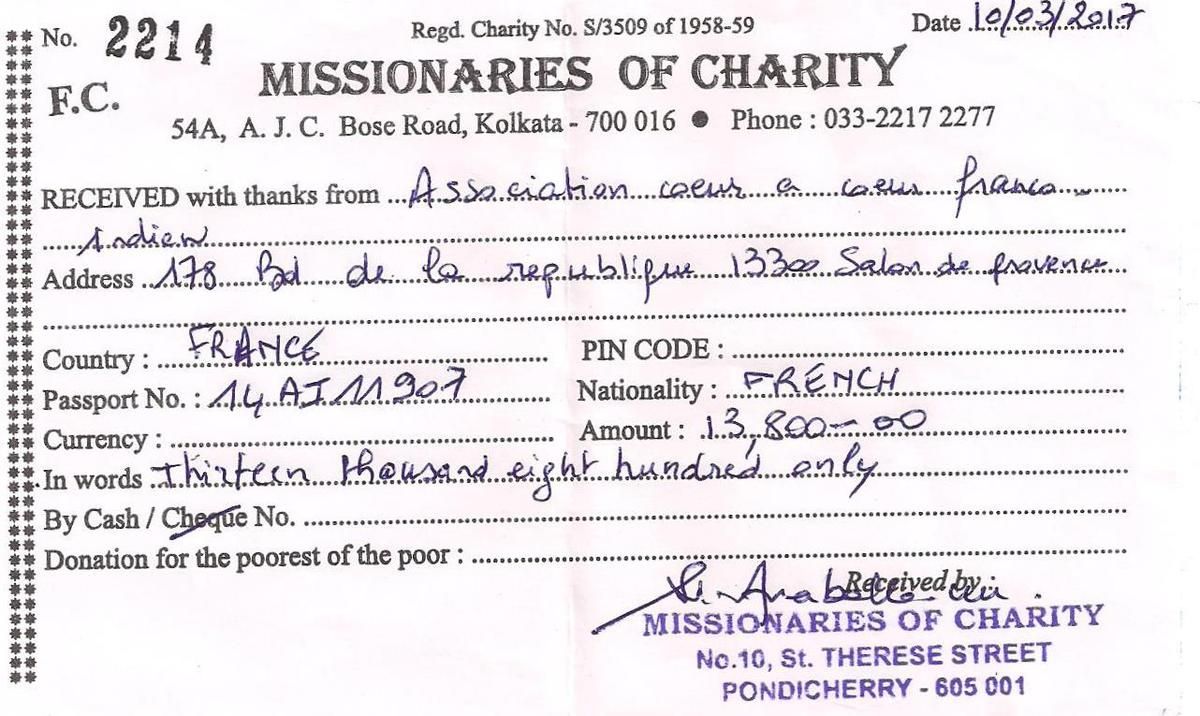 No. 2214
Regd. Charity No. S/3509 of 1958-59
Date 10/03/2017
F.C.
MISSIONARIES OF CHARITY
54A, A. J. C. Bose Road, Kolkata - 700 016 ● Phone : 033-2217 2277
RECEIVED with thanks from Association coeur a coeur franco
Indien
Address 178 Bd de la republique 13300 Salon de provence
Country : FRANCE PIN CODE :
Passport No. : 14AI11907 Nationality : FRENCH
Currency : Amount : 13,800-00
In words Thirteen thousand eight hundred only
By Cash / Cheque No.
Donation for the poorest of the poor :
Received by :
MISSIONARIES OF CHARITY
No.10, St. THERESE STREET
PONDICHERRY - 605 001